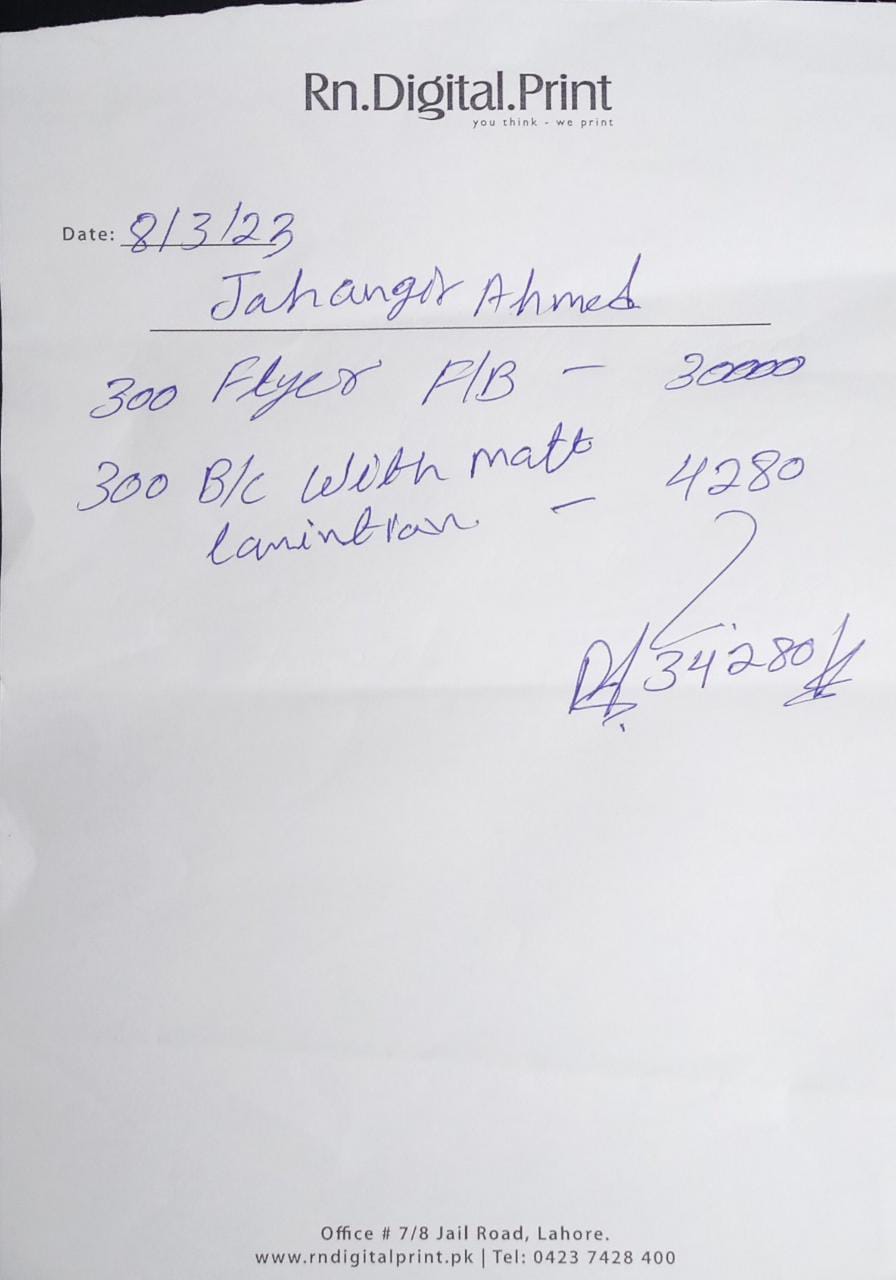 Rn.Digital.Print
you think - we print
Date: 8/3/23
Jahangir Ahmed
300 Flyer F/B - 30000
300 B/c With matt
lamintian - 4280
34280
Office # 7/8 Jail Road, Lahore.
www.rndigitalprint.pk | Tel: 0423 7428 400